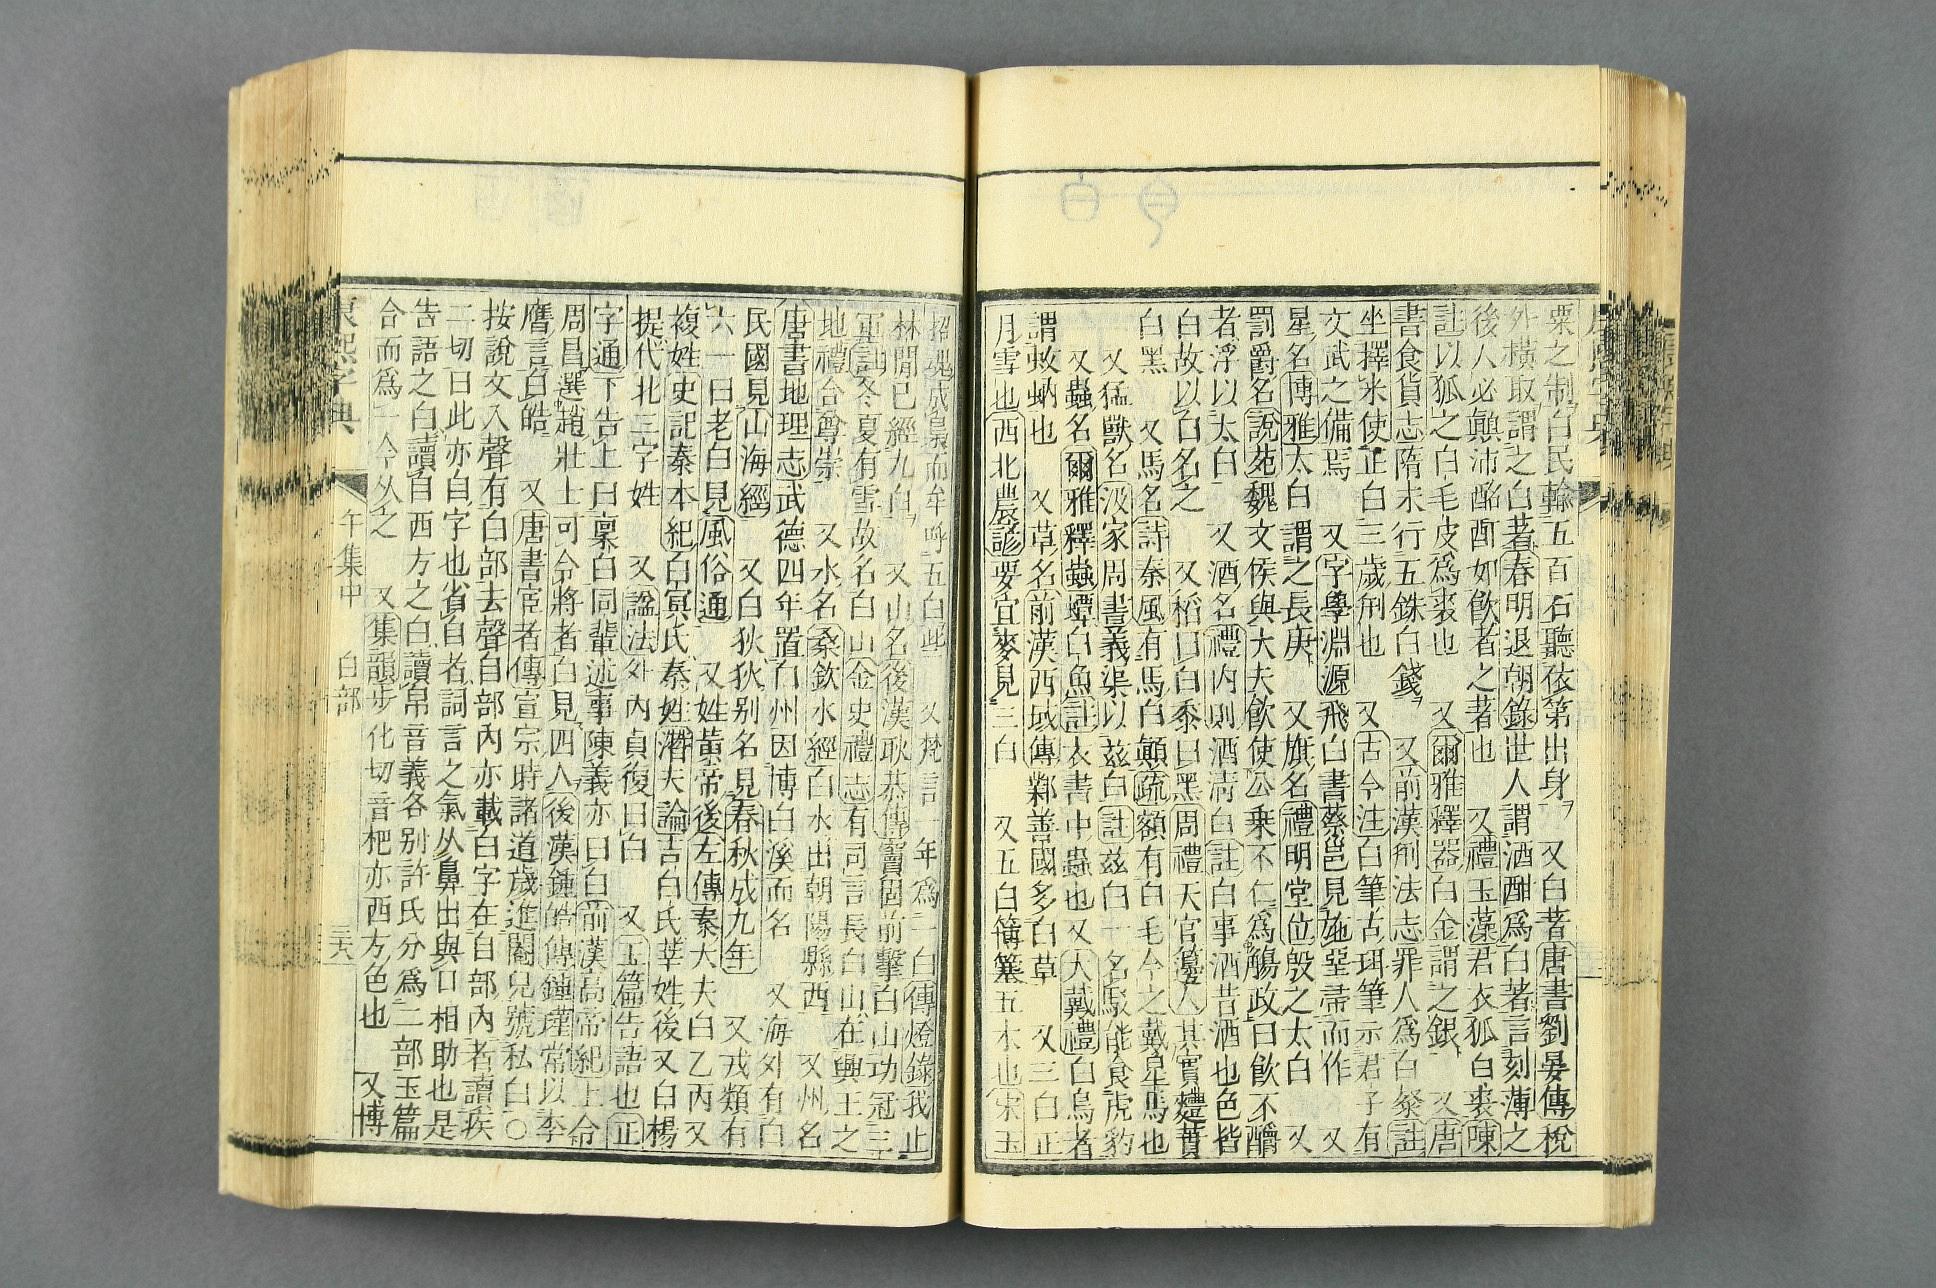 粟之制白民輸五百石聽依第出身 又白著唐書劉晏傳稅
外橫取謂之白著春明退朝錄世人謂酒酣爲白著言刻薄之
後人必顚沛酩酊如飮者之著也 又禮玉藻君衣狐白裘陳
註以狐之白毛皮爲裘也 又爾雅釋器白金謂之銀 又唐
書食貨志隋末行五銖白錢 又前漢刑法志罪人爲白粲註
坐擇米使正白三歲刑也 又古今注白筆古珥筆示君子有
文武之備焉 又字學淵源飛白書蔡邕見施堊帚而作 又
星名博雅太白謂之長庚 又旗名禮明堂位殷之太白 又
罰爵名說苑魏文侯與大夫飮使公乗不仁爲觴政曰飮不釂
者浮以太白 又酒名禮内則酒淸白註白事酒昔酒也色皆
白故以白名之 又稻曰白黍曰黑周禮天官籩人其實麷蕡
白黑 又馬名詩秦風有馬白顚疏額有白毛今之戴星馬也
又猛獸名汲家周書義渠以茲白註茲白一名駮能食虎豹
又蟲名爾雅釋蟲蟫白魚註衣書中蟲也又大戴禮白鳥者
謂蚊蚋也 又草名前漢西域傳鄯善國多白草 又三白正
月雪也西北農諺要宜麥見三白 又五白簙簺五木也宋玉
招魂成梟而牟呼五白些 又梵言一年爲一白傳燈錄我止
林閒已經九白 又山名後漢耿恭傳竇固前擊白山功冠三
軍註冬夏有雪故名白山金史禮志有司言長白山在興王之
地禮合尊崇 又水名桑欽水經白水出朝陽縣西 又州名
唐書地理志武德四年置白州因博白溪而名 又海外有白
民國見山海經 又白狄狄别名見春秋成九年 又戎類有
六一曰老白見風俗通 又姓黃帝後左傳秦大夫白乙丙又
複姓史記秦本紀白冥氏秦姓潛夫論吉白氏莘姓後又白楊
提代北三字姓 又諡法外内貞復曰白 又玉篇告語也正
字通下告上曰稟白同輩述事陳義亦曰白前漢高帝紀上令
周昌選趙壯士可令將者白見四人後漢鍾皓傳鍾瑾常以李
膺言白皓 又唐書宦者傳宣宗時諸道歲進閹兒號私白○
按說文入聲有白部去聲自部内亦載白字在自部内者讀疾
二切曰此亦自字也省自者詞言之氣从鼻出與口相助也是
告語之白讀自西方之白讀帛音義各别許氏分爲二部玉篇
合而爲一今从之 又集韻步化切音杷亦西方色也 又博
康熙字典 午集中 白部 三六